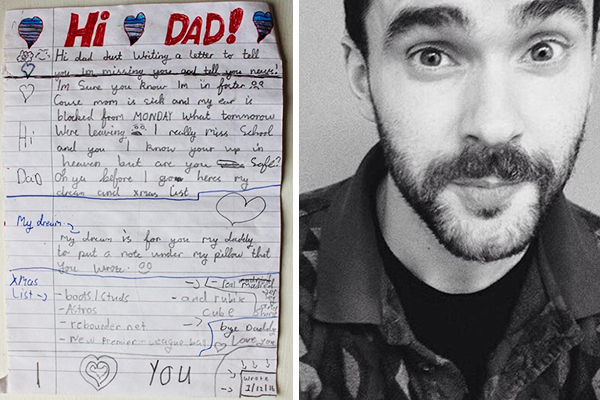 Hi DAD!
Hi dad Just Writing a letter to tell
you Im missing you and tell you news!
I'm Sure you know Im in foster
Couse mom is sick and my ear is
blocked from MONDAY What tommorow
Were leaving I really miss School
and you I know your up in
heaven but are you Safe?
Oh ya before I go heres my
dream and xmas List
Hi
Dad
My dream
my dream is for you my daddy
to put a note under my pillow that
you wrote.
XMas
List
- boots/studs
- Astros
- rebounder net
- new Premier-league ball
- and rubix
cube
bye Daddy
Love you
I
YOU
Wrote
1/12/16